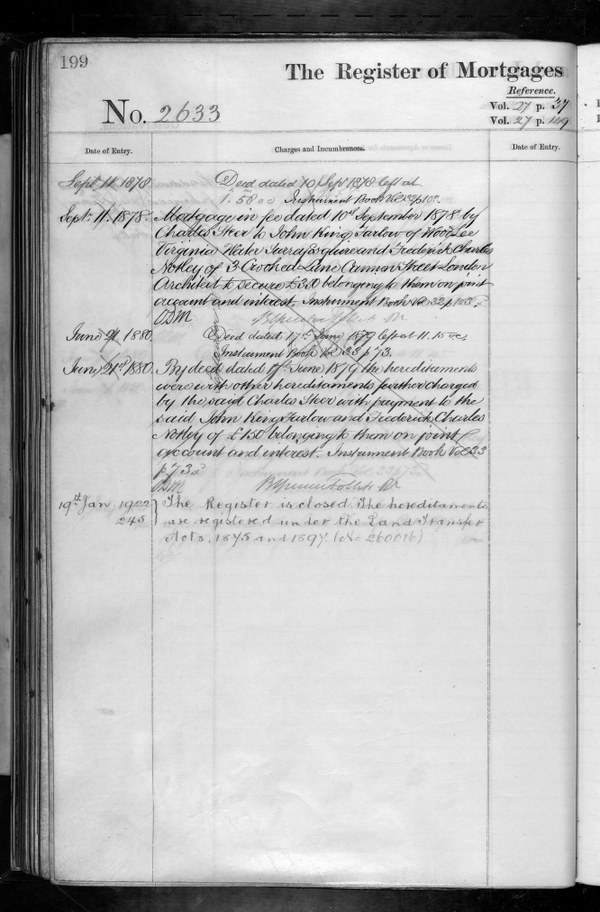 199
The Register of Mortgages
Reference.
No. 2633
Vol. 27 p. 37
Vol. 27 p. 149
Date of Entry.
Charges and Incumbrances.
Date of Entry.
Sept. 11. 1878
Deed dated 10 Sept 1878 left at
1. 50 Instrument Book Vol 32 p 103.
Sept. 11. 1878.
Mortgage in fee dated 10th September 1878 by
Charles Steer to John King Farlow of Wood Lee
Virginia Water Surrey Esquire and Frederick Charles
Notley of 3 Crooked Lane Cannon Street London
Architect to secure £300 belonging to them on joint
account and interest. Instrument Book Vol 32 p 103.
June 21. 1880.
Deed dated 17th June 1879 left at 11.15
Instrument Book Vol 33 p 73.
June 21st 1880.
By deed dated 17th June 1879 the hereditaments
were with other hereditaments further charged
by the said Charles Steer with payment to the
said John King Farlow and Frederick Charles
Notley of £150 belonging to them on joint
account and interest. Instrument Book Vol 33
p 73
19th Jan 1922
The Register is closed. The hereditaments
245
are registered under the Land Transfer
Acts, 1875 and 1897. (No 260016)